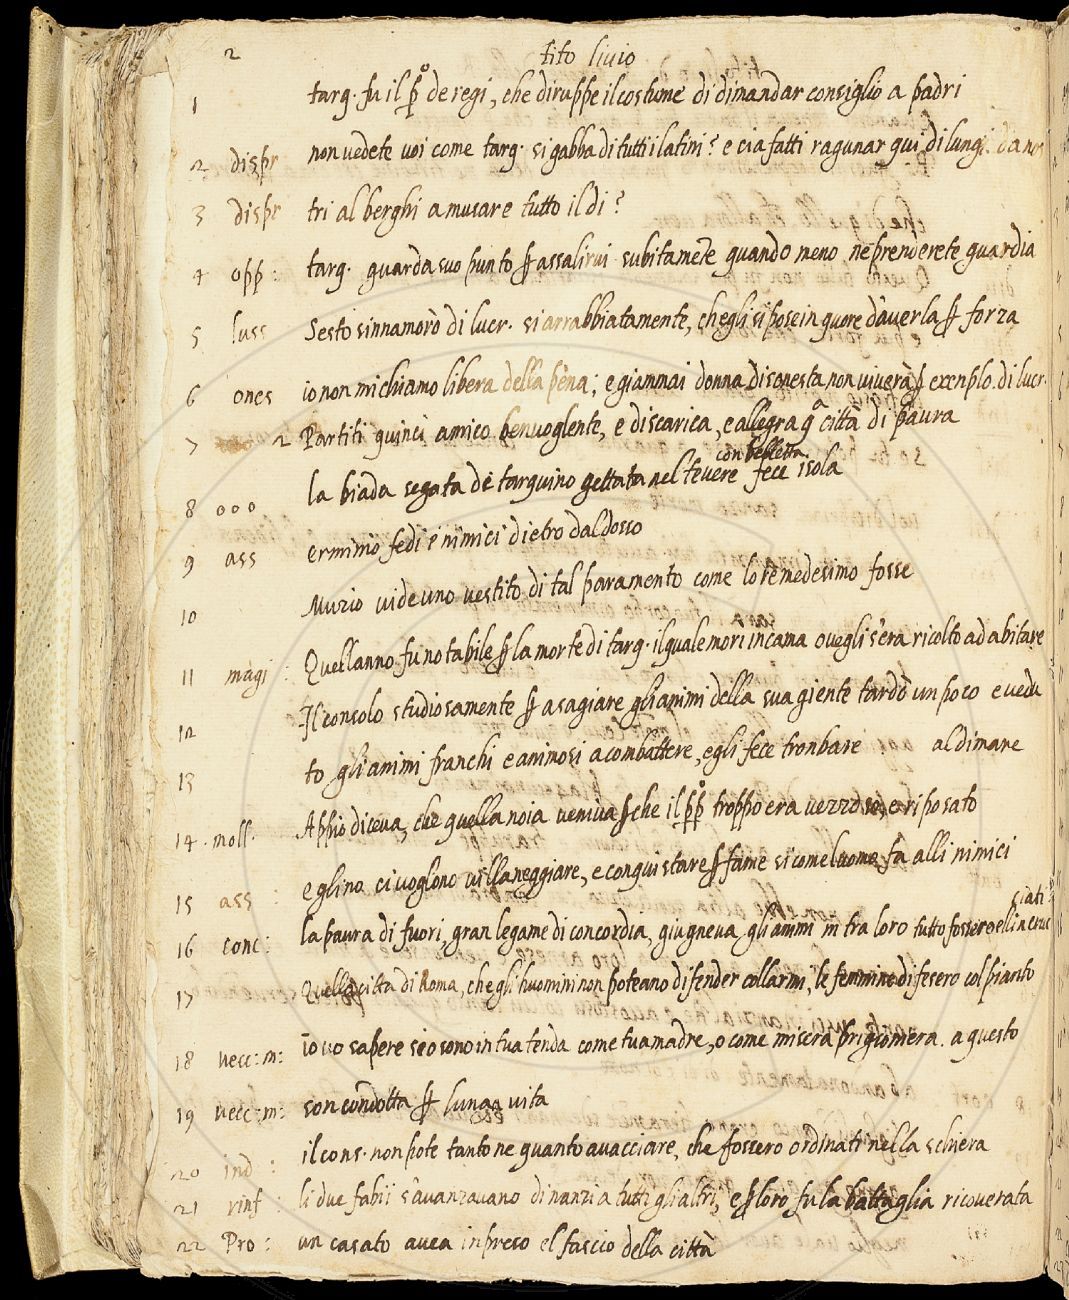 2 tito livio
1 targ. fu il pº de regi, che diruppe il costume di dimandar consiglio a padri
2 dispr non vedete voi come targ. si gabba di tutti i latini? e cia fatti ragunar qui di lungi da nos
3 dispr tri al berghi a musare tutto il di?
4 opp: targ. guarda suo punto p assalirvi subitamēte quando meno ne prenderete guardia
5 luss Sesto sinnamorò di lucr. si arrabbiatamente, chegli si pose in quore d'averla p forza
6 ones io non mi chiamo libera della pēna; e giammai donna disonesta non viverà p exenplo di lucr.
7 2 Partiti quinci amico benvoglente, e discarica, e allegra qª città di paura
con belletta
8 ooo la biada segata de targuino gettata nel tevere fece isola
9 ass erminio fedi i nimici dietro dal dosso
10 Muzio vide uno vestito di tal paramento come lo re medesimo fosse
11 magi: Quellanno fu notabile p la morte di targ. ilquale mori in cama ovegli s'era ricolto ad abitare
12 Il consolo studiosamente p asagiare gli animi della sua giente tardò un poco e vedu
13 to gli animi franchi e animosi a combattere, egli fece tronbare al dimane
14. moll. Appio diceva, che quella noia veniva p che il ppº troppo era vezzoso, e riposato
15 ass: eglino ci voglono villaneggiare, e conquistare p fame si come luomo fa alli nimici
ciati
16 conc: la paura di fuori, gran legame di concordia, giugneva gli animi in fra loro tutto fossero elli n cruc
17 Quella città di Roma, che gli huomini non poteano difender collarmi, le femmine difesero col pianto
18 vecc: m: io vo sapere se io sono in tua tenda come tua madre, o come misera prigioniera. a questo
19 vecc: m: son condotta p lunga vita
20 ind: il cons. non pote tanto ne quanto avacciare, che fossero ordinati nella schiera
21 rinf: li due fabii s'avanzavano dinanzi a tutti gli altri, e p loro fu la battaglia ricoverata
22 Pro: un casato avea inpreso el fascio della città